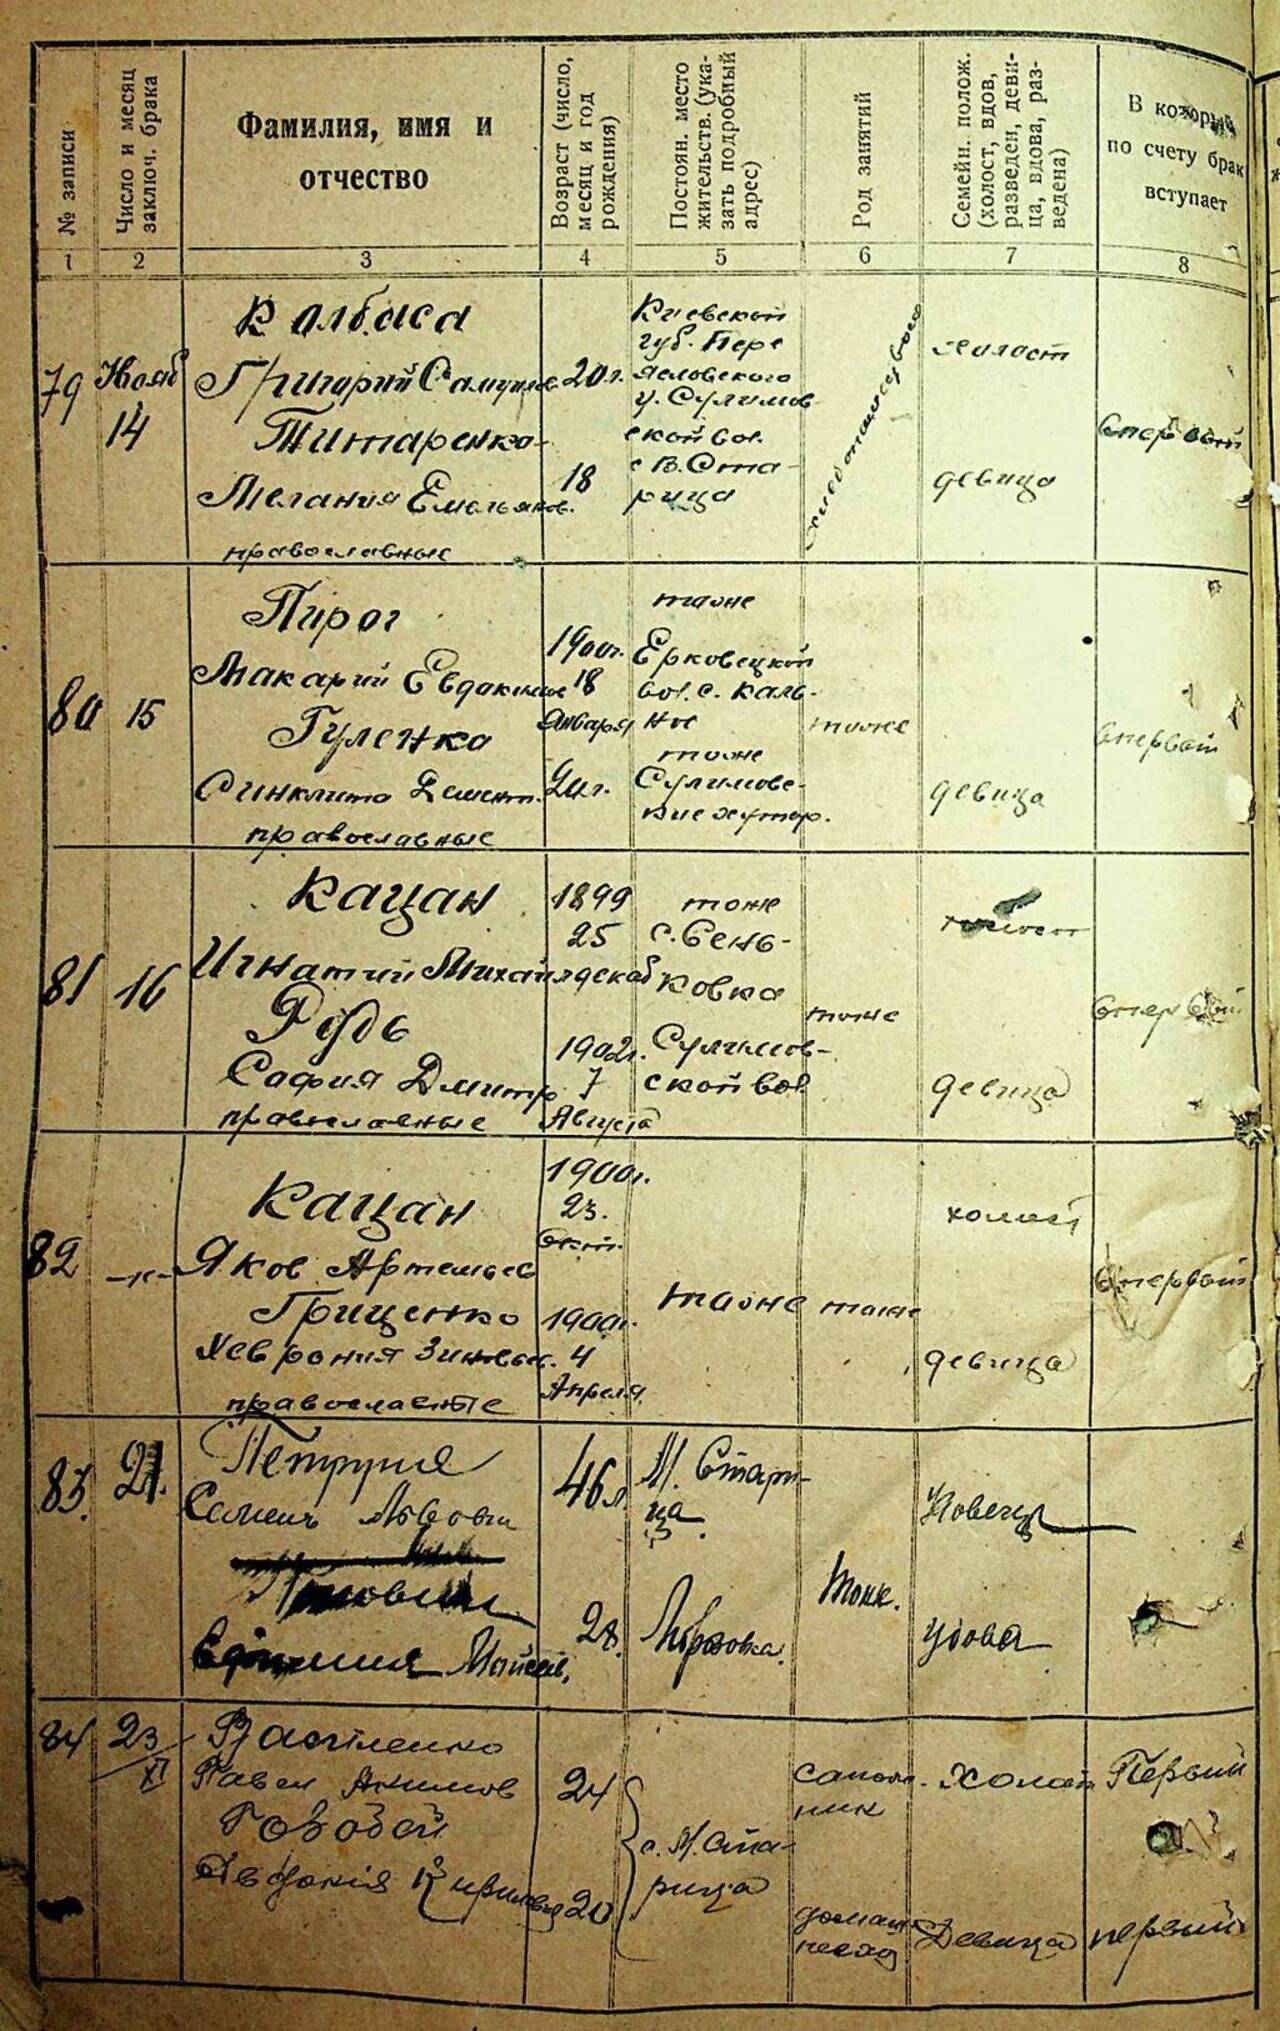 № записи
Число и месяц
заключ. брака
Фамилия, имя и
отчество
Возраст (число,
месяц и год
рождения)
Постоян. место
жительств. (ука-
зать подробный
адрес)
Род занятий
Семейн. полож.
(холост, вдов,
разведен, деви-
ца, вдова, раз-
ведена)
В который
по счету брак
вступает
1 2 3 4 5 6 7 8
79
Нояб
14
Колбаса
Григорий Самуилов
Титаренко
Мелания Емельянов.
православные
20 л.
18
Киевской
губ. Пере
яславского
у. Сулимов
ской вол.
с В. Ста-
рица
хлебопашество
холост
девица
впервый
80
15
Пирог
Макарий Евдокимов
Гуленко
Синклита Демент.
православные
1900г.
18
Января
20 г.
тоже
Ерковецкой
вол. с. Каль-
ное
тоже
Сулимовс-
кие хутор.
тоже
девица
впервый
81
16
Кацан
Игнатий Михайл
Рудь
София Дмитр
православные
1899
25
декаб
1902г.
7
Августа
тоже
с. Сень-
ковка
Сулимов-
ской вол.
тоже
холост
девица
впервый
82
-"-
Кацан
Яков Артемьев
Гриценко
Хеврония Зиновьев.
православные
1900г.
23.
Окт.
1900г.
4
Апреля
тоже
тоже
холост
девица
впервый
83.
21.
Семенъ
Моисеев.
46 л.
28.
М. Стари-
ца
Тоже.
Удовец
Удова
84
23
XI
Василенко
Павел Якимов
24
20
с. М. Ста-
рица
сапож-
ник
холост
Девица
Первый
первый